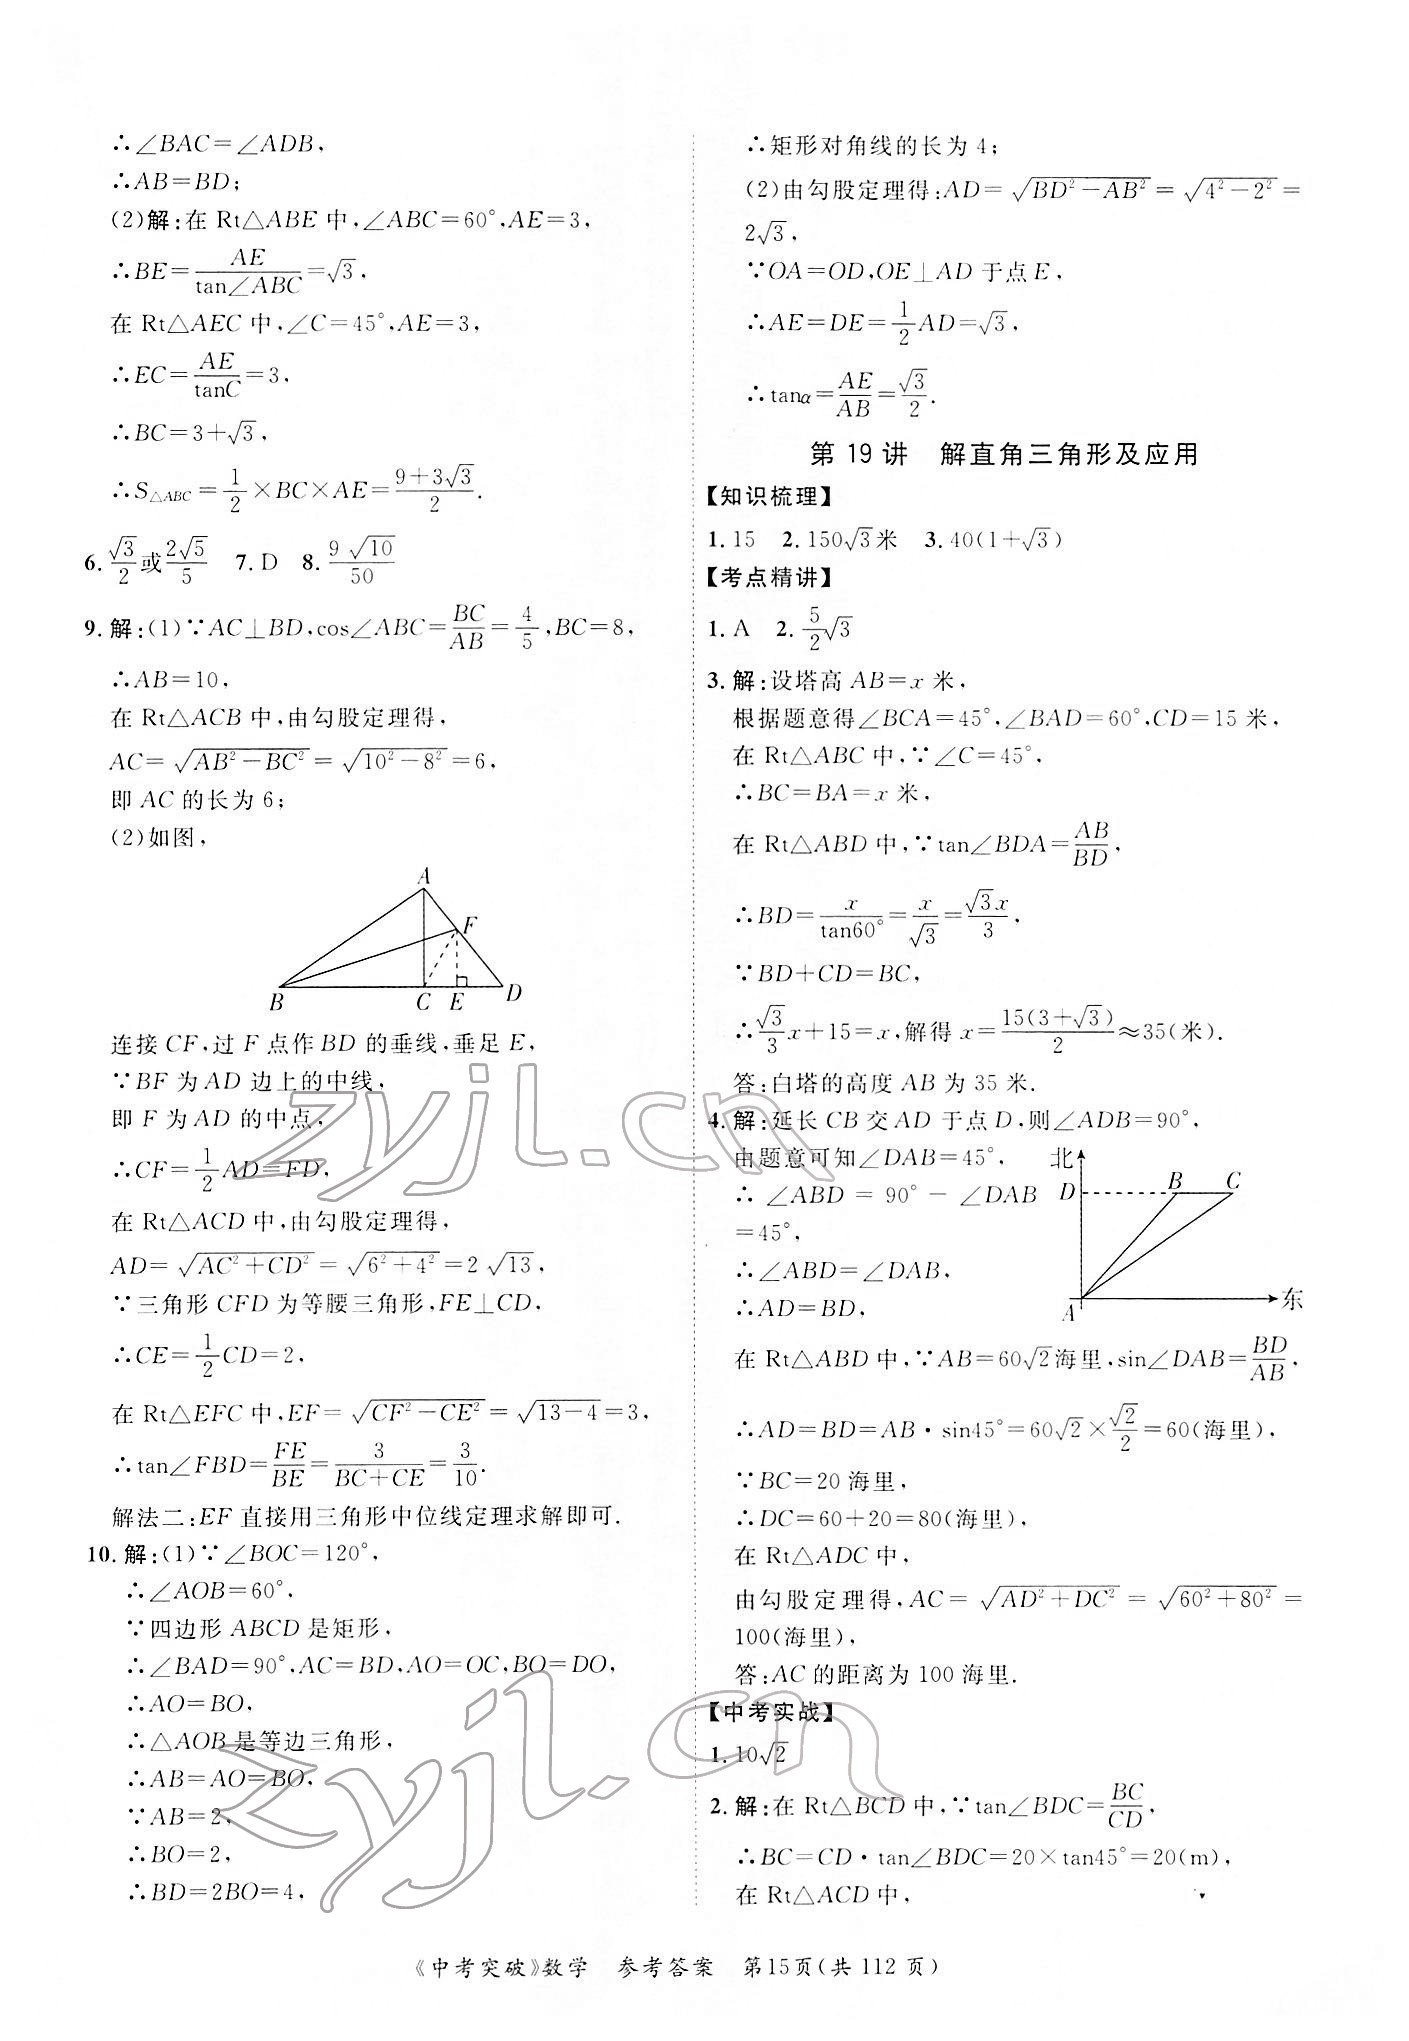 ∴∠BAC=∠ADB,
∴AB=BD;
(2)解:在 Rt△ABE 中,∠ABC=60°,AE=3,
∴BE=AE/tan∠ABC=√3,
在 Rt△AEC 中,∠C=45°,AE=3,
∴EC=AE/tanC=3,
∴BC=3+√3,
∴S△ABC=1/2×BC×AE=(9+3√3)/2.
6. √3/2或2√5/5 7. D 8. 9√10/50
9. 解:(1)∵AC⊥BD,cos∠ABC=BC/AB=4/5,BC=8,
∴AB=10,
在 Rt△ACB 中,由勾股定理得,
AC=√(AB²-BC²)=√(10²-8²)=6,
即 AC 的长为 6;
(2)如图,
A
F
B
C
E
D
连接 CF,过 F 点作 BD 的垂线,垂足 E,
∵BF 为 AD 边上的中线,
即 F 为 AD 的中点,
∴CF=1/2AD=FD,
在 Rt△ACD 中,由勾股定理得,
AD=√(AC²+CD²)=√(6²+4²)=2√13,
∵三角形 CFD 为等腰三角形,FE⊥CD,
∴CE=1/2CD=2,
在 Rt△EFC 中,EF=√(CF²-CE²)=√(13-4)=3,
∴tan∠FBD=FE/BE=3/(BC+CE)=3/10.
解法二:EF 直接用三角形中位线定理求解即可.
10. 解:(1)∵∠BOC=120°,
∴∠AOB=60°,
∵四边形 ABCD 是矩形,
∴∠BAD=90°,AC=BD,AO=OC,BO=DO,
∴AO=BO,
∴△AOB 是等边三角形,
∴AB=AO=BO,
∵AB=2,
∴BO=2,
∴BD=2BO=4,
∴矩形对角线的长为 4;
(2)由勾股定理得:AD=√(BD²-AB²)=√(4²-2²)=
2√3,
∵OA=OD,OE⊥AD 于点 E,
∴AE=DE=1/2AD=√3,
∴tanα=AE/AB=√3/2.
第 19 讲 解直角三角形及应用
【知识梳理】
1. 15 2. 150√3米 3. 40(1+√3)
【考点精讲】
1. A 2. 5/2√3
3. 解:设塔高 AB=x 米,
根据题意得∠BCA=45°,∠BAD=60°,CD=15 米,
在 Rt△ABC 中,∵∠C=45°,
∴BC=BA=x 米,
在 Rt△ABD 中,∵tan∠BDA=AB/BD,
∴BD=x/tan60°=x/√3=√3x/3,
∵BD+CD=BC,
∴√3/3x+15=x,解得 x=15(3+√3)/2≈35(米).
答:白塔的高度 AB 为 35 米.
4. 解:延长 CB 交 AD 于点 D,则∠ADB=90°,
由题意可知∠DAB=45°,
∴ ∠ABD = 90° - ∠DAB
=45°,
∴∠ABD=∠DAB,
∴AD=BD,
北
D
B
C
A
东
在 Rt△ABD 中,∵AB=60√2海里,sin∠DAB=BD/AB,
∴AD=BD=AB·sin45°=60√2×√2/2=60(海里),
∵BC=20 海里,
∴DC=60+20=80(海里),
在 Rt△ADC 中,
由勾股定理得,AC=√(AD²+DC²)=√(60²+80²)=
100(海里),
答:AC 的距离为 100 海里.
【中考实战】
1. 10√2
2. 解:在 Rt△BCD 中,∵tan∠BDC=BC/CD,
∴BC=CD·tan∠BDC=20×tan45°=20(m),
在 Rt△ACD 中,
《中考突破》数学 参考答案 第15页(共 112 页)
zyjl.cn
zyjl.cn